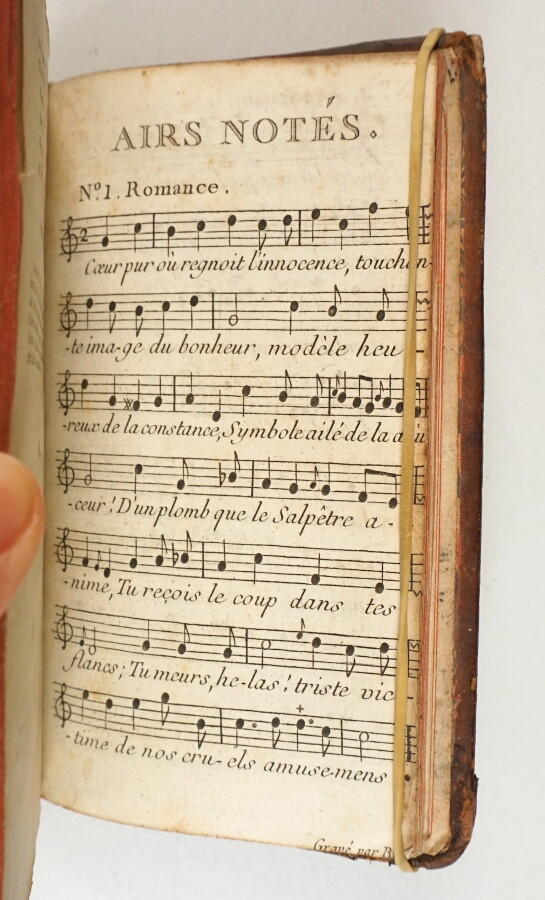 AIRS NOTÉS.
Nº.1. Romance.
2
Cœur pur où regnoit l'innocence, touchan-
-te ima-ge du bonheur, modèle heu -
-reux de la constance, Symbole ailé de la
-ceur! D'un plomb que le Salpêtre a-
-nime, Tu reçois le coup dans tes
flancs; Tu meurs, he-las! triste vic
-time de nos cru-els amuse-mens
Gravé par